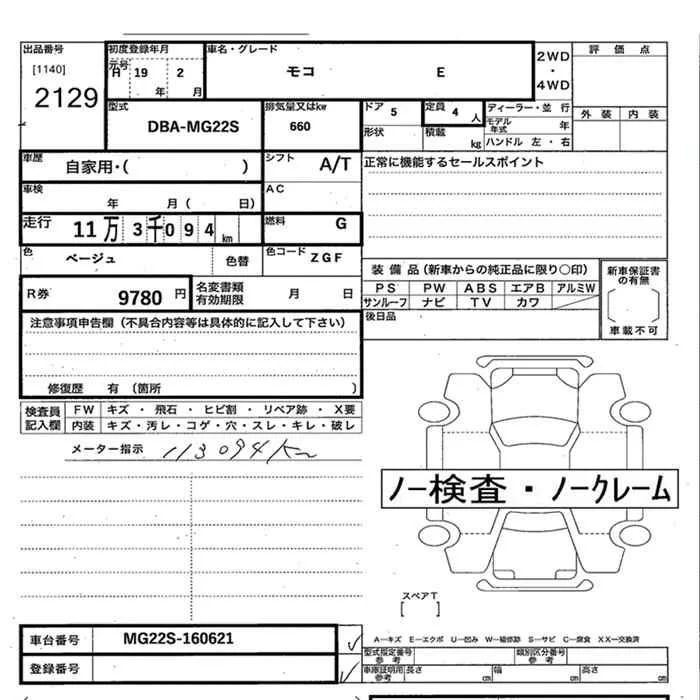 出品番号
[1140]
2129
初度登録年月
元号
H 19 2
年 月
車名・グレード
モコ E
2WD
・
4WD
評 価 点
外 装 内 装
型式
DBA-MG22S
排気量又はkw
660
ドア 5
形状
定員 4 人
積載 kg
ディーラー・並 行
モデル年式 年
ハンドル 左 ・ 右
車歴
自家用・( )
シフト
A/T
車検
年 月 ( 日)
AC
走行
11 万 3 千 0 9 4 km
燃料
G
色
ベージュ
色替
色コード
ZGF
正常に機能するセールスポイント
R券
9780 円
名変書類
有効期限
月 日
装 備 品 (新車からの純正品に限り○印)
PS PW ABS エアB アルミW
サンルーフ ナビ TV カワ
後日品
新車保証書
の有無
車載不可
注意事項申告欄 (不具合内容等は具体的に記入して下さい)
修復歴 有 (箇所 )
検査員
記入欄
FW キズ ・ 飛石 ・ ヒビ割 ・ リペア跡 ・ X要
内装 キズ・汚レ・コゲ・穴・スレ・キレ・破レ
メーター指示 113094Km
ノー検査・ノークレーム
スペアT
[ ]
車台番号
MG22S-160621
登録番号
A－キズ E－エクボ U－凹み W－補修跡 S－サビ C－腐食 XX－交換済
型式指定番号
参考
類別区分番号
参考
車庫証明用
参考
長さ cm 幅 cm 高さ cm